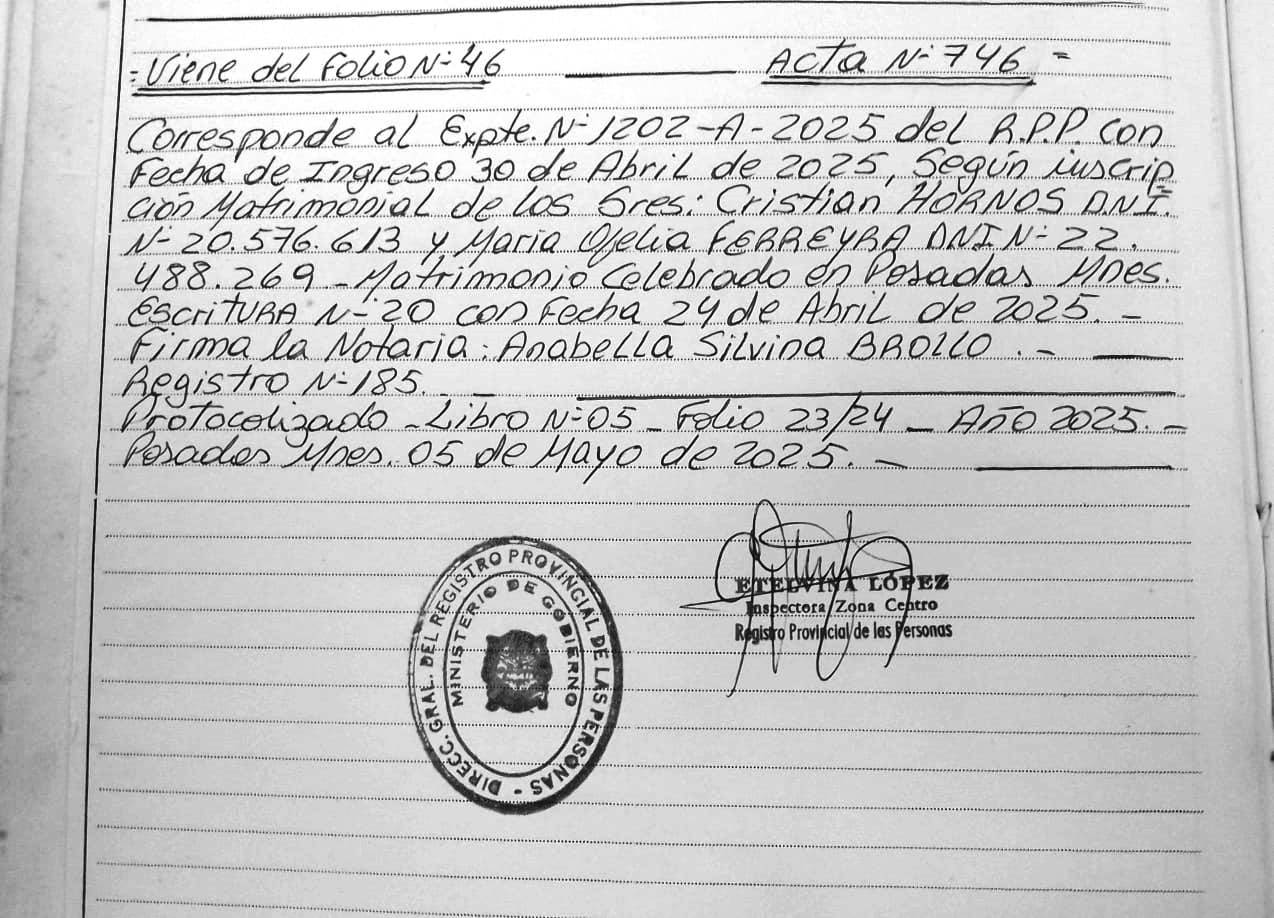 = Viene del Folio N° 46 Acta N° 746 =
Corresponde al Expte. N° 1202-A-2025 del R.P.P. con
Fecha de Ingreso 30 de Abril de 2025, Según inscrip
ción Matrimonial de los Sres: Cristian HORNOS D.N.I.
N° 20.576.613 y Maria Ofelia FERREYRA DNI N° 22.
488.269 - Matrimonio Celebrado en Posadas Mnes.
Escritura N° 20 con Fecha 24 de Abril de 2025. -
Firma la Notaria: Anabella Silvina BROLLO . -
Registro N° 185.
Protocolizado - Libro N° 05 - Folio 23/24 - Año 2025. -
Posadas Mnes. 05 de Mayo de 2025. -
DIRECC. GRAL. DEL REGISTRO PROVINCIAL DE LAS PERSONAS -
MINISTERIO DE GOBIERNO
ETELVINA LÓPEZ
Inspectora Zona Centro
Registro Provincial de las Personas